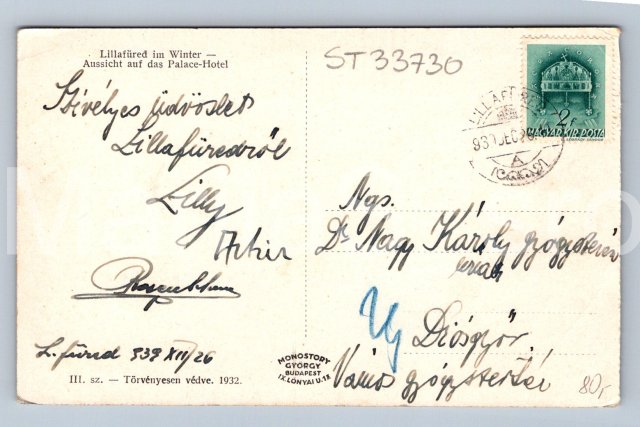 Lillafüred im Winter —
Aussicht auf das Palace-Hotel
ST 33730
Szívélyes üdvözlet
Lillafüredről
Lilly
2 f
MAGYAR KIR. POSTA
LILLAFÜRED
939 DEC 26
A
Ngs.
Dr Nagy Károly gyógyszerész
Új Diósgyőr
Városi gyógyszertár
L. füred 939 XII/26
MONOSTORY
GYÖRGY
BUDAPEST
IX. LÓNYAI U. 18
III. sz. — Törvényesen védve. 1932.
80,-